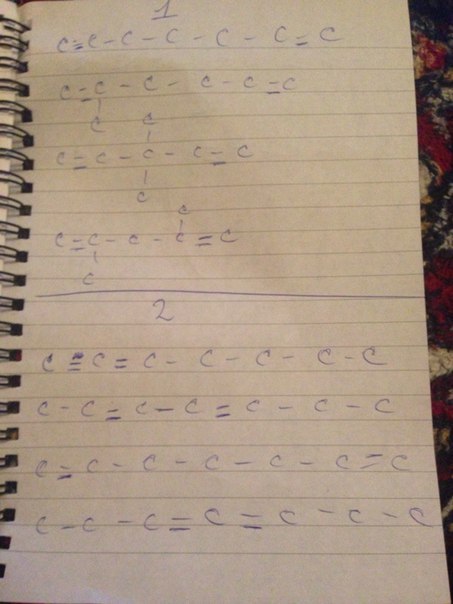 1
C=C-C-C-C-C=C
C=C-C-C-C=C
C C
C=C-C-C=C
C
C
C=C-C-C=C
C
2
C=C=C-C-C-C-C
C-C=C-C=C-C-C
C=C-C-C-C-C=C
C-C-C=C=C-C-C